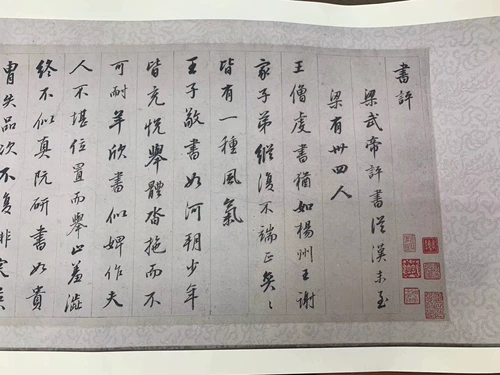 書評
梁武帝評書從漢末至
梁有卅四人
王僧虔書猶如楊州王謝
家子弟縱復不端正奕〻
皆有一種風氣
王子敬書如河朔少年
皆充悦舉體沓拖而不
可耐羊欣書似婢作夫
人不堪位置而舉止羞澁
終不似真阮研書如貴
胄失品次不復排突英